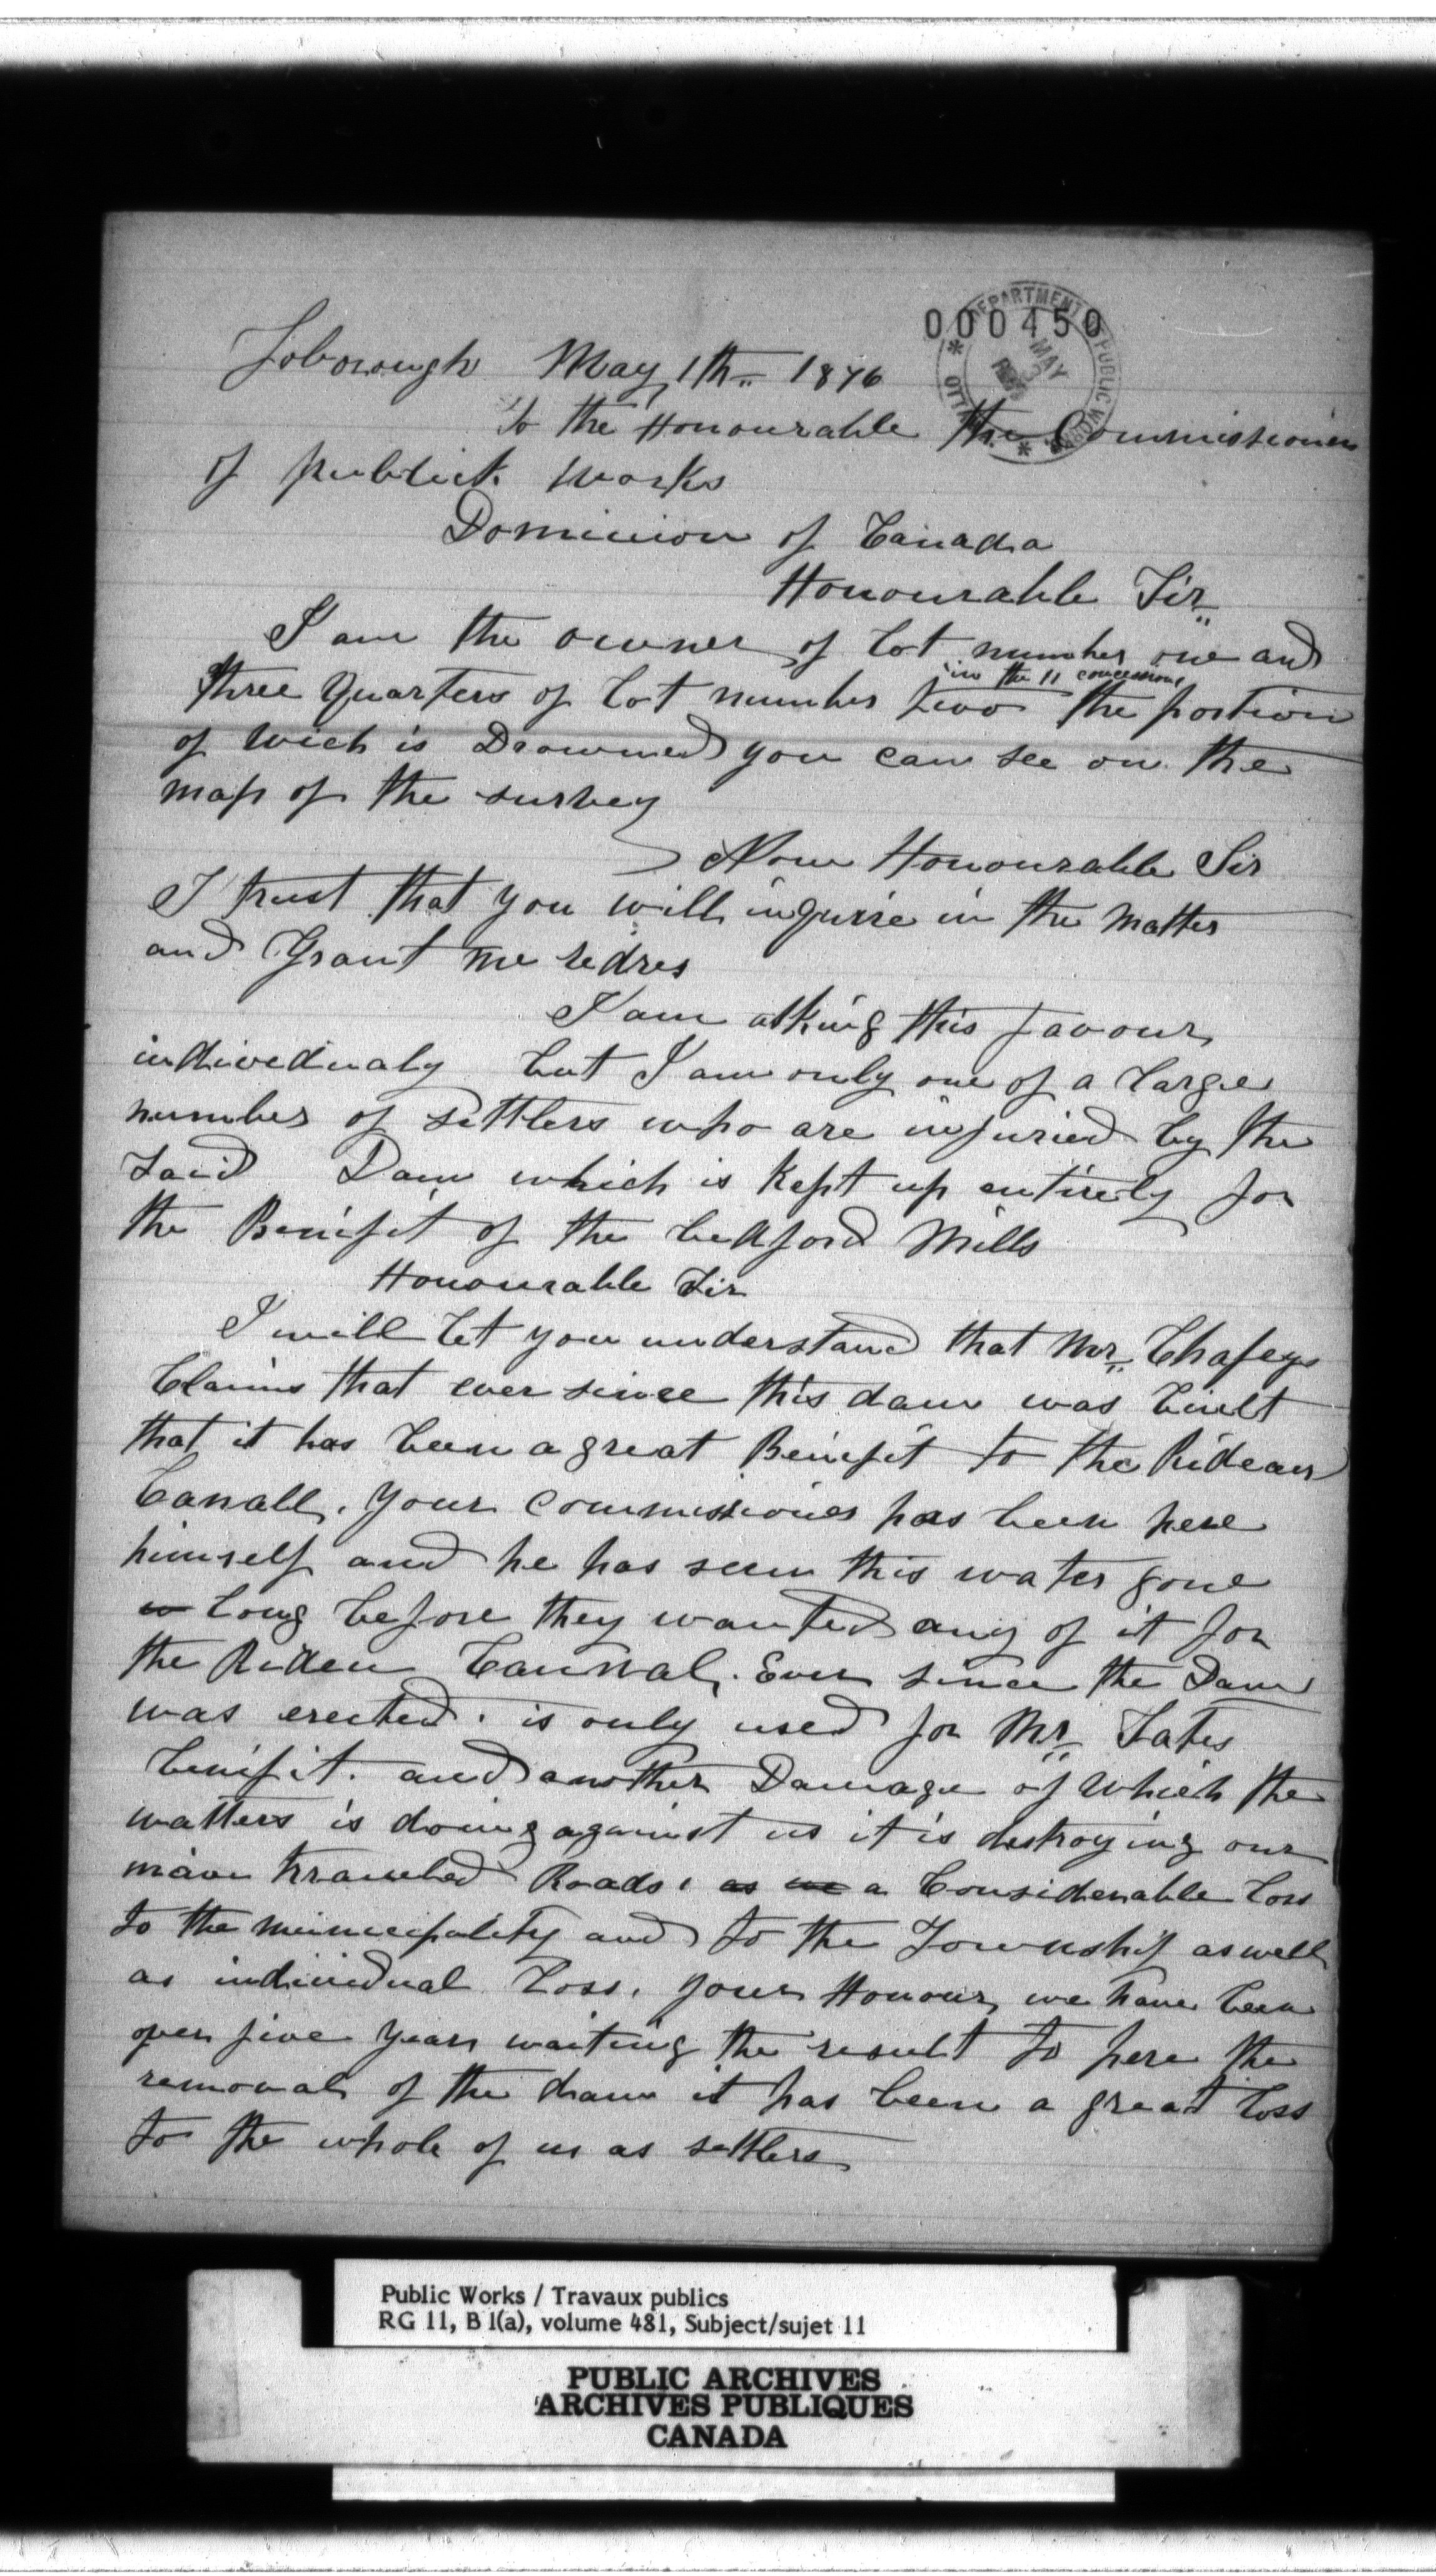 000450
DEPARTMENT OF PUBLIC WORKS
OTTAWA
MAY
Loborough May 1th 1876
to the Honourable the Commissioner
of publick works
Dominion of Canada
Honourable Sir
I am the owner of Lot number one and
in the 11 concession
three Quarters of Lot number two the portion
of wich is Drowned you can see on the
map of the survey
Now Honourable Sir
I trust that you will inquire in the matter
and Grant me redres
I am asking this favour
indivedualy but I am only one of a large
number of settlers who are injuried by the
said Dam which is Kept up entirely for
the Benifit of the Bedford Mills
Honourable Sir
I will Let you understand that Mr Chafeys
Claims that ever since this dam was built
that it has been a great Benifit to the Rideau
Canall. your commissioner has been here
himself and he has seen this water gone
long before they wanted any of it for
the Rideu Cannal. Ever since the Dam
was erected. is only used for Mr Tates
benifit. and another Damage of which the
watters is doing against us it is destroying our
main traveled Roads. as a Considerable Loss
to the municipality and to the Township as well
as individual Loss. your Honour we have been
over five years waiting the result to here the
removal of the dam it has been a great Loss
to the whole of us as settlers
Public Works / Travaux publics
RG 11, B 1(a), volume 481, Subject/sujet 11
PUBLIC ARCHIVES
ARCHIVES PUBLIQUES
CANADA